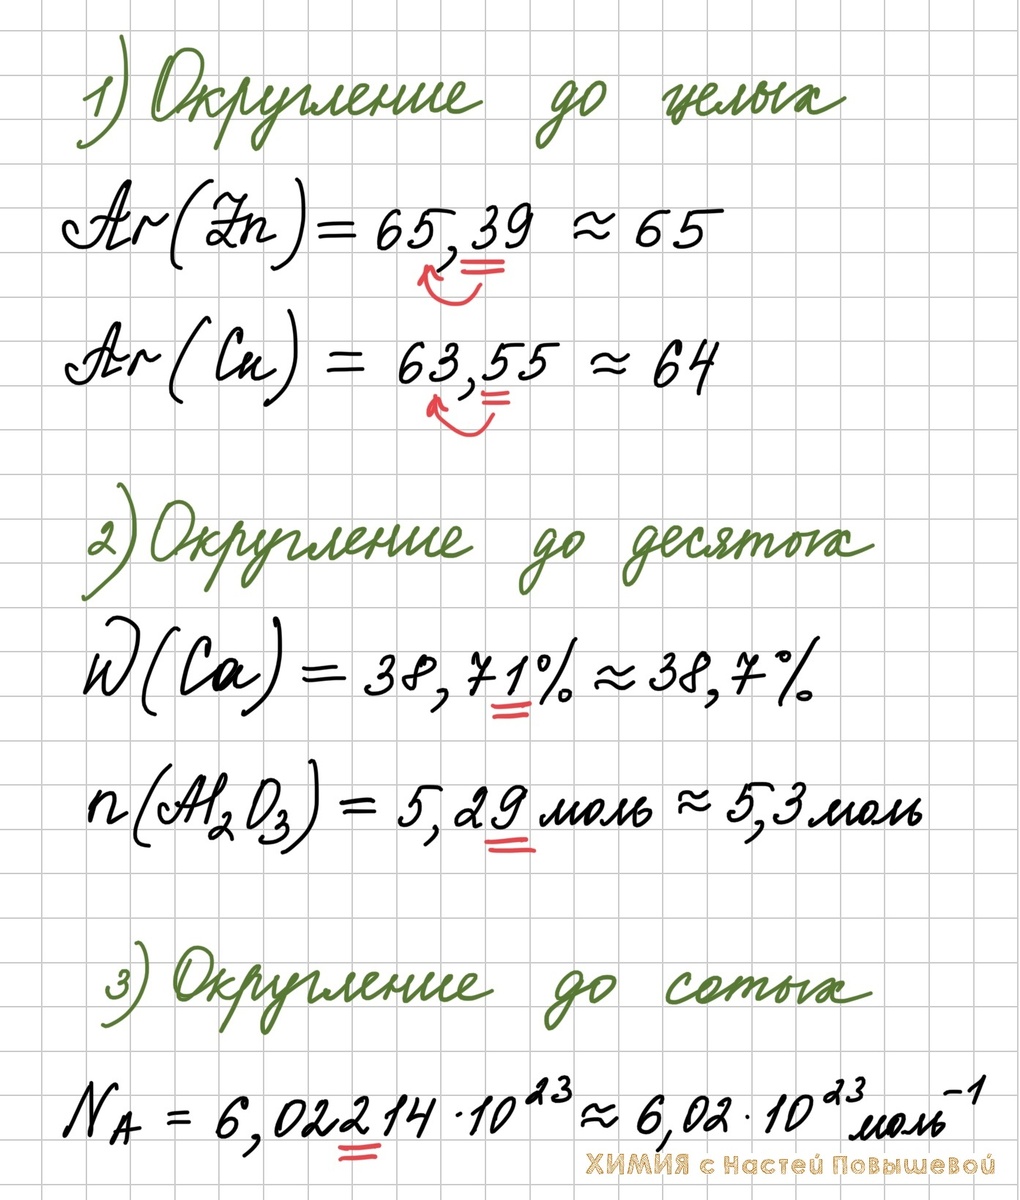 1) Округление до целых
Ar(Zn) = 65,39 ≈ 65
Ar(Cu) = 63,55 ≈ 64
2) Округление до десятых
W(Ca) = 38,71% ≈ 38,7%
n(Al₂O₃) = 5,29 моль ≈ 5,3 моль
3) Округление до сотых
N_A = 6,02214 · 10²³ ≈ 6,02 · 10²³ моль⁻¹
ХИМИЯ с Настей Повышевой